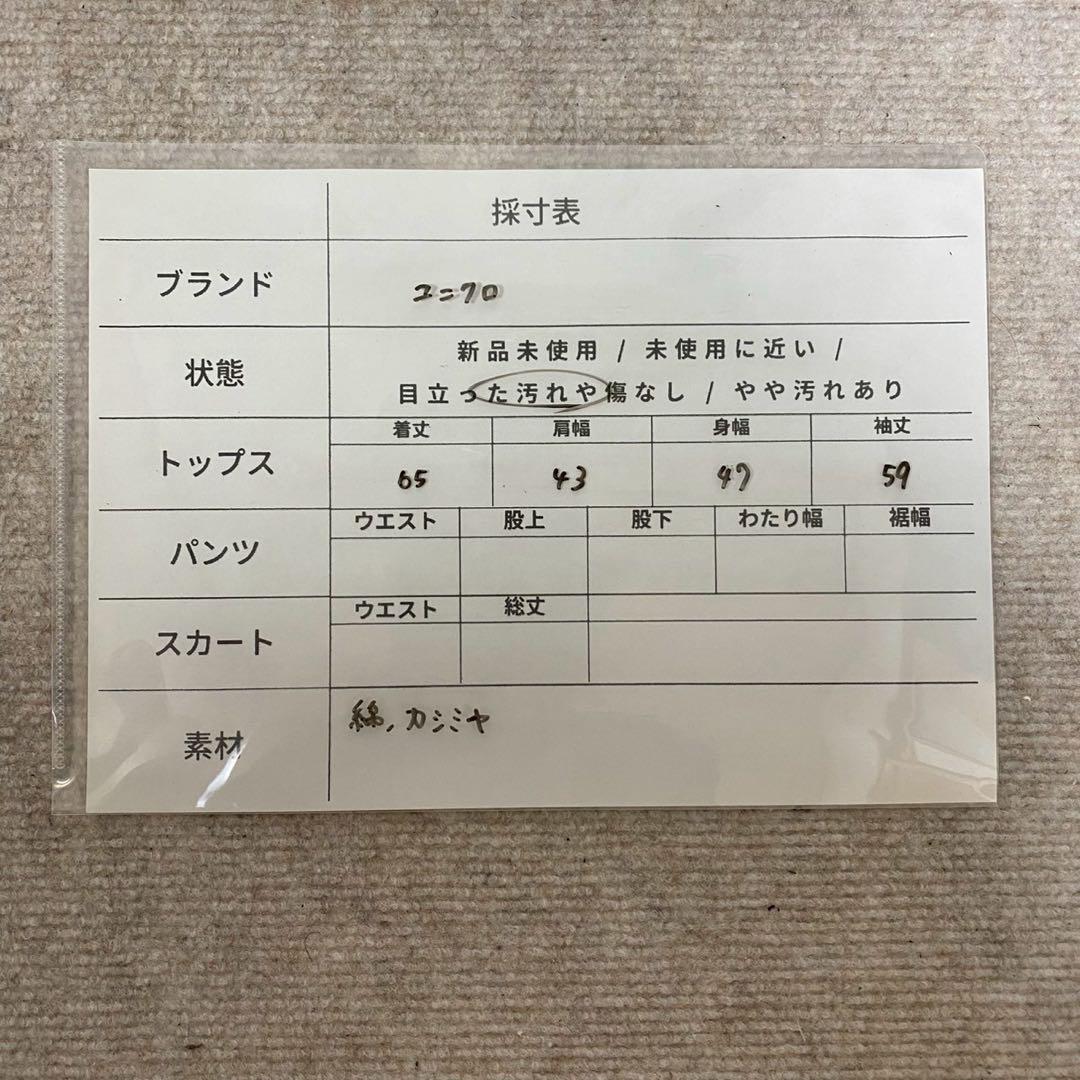 採寸表
ブランド ユニクロ
状態 新品未使用 / 未使用に近い /
目立った汚れや傷なし / やや汚れあり
トップス 着丈 肩幅 身幅 袖丈
65 43 47 59
パンツ ウエスト 股上 股下 わたり幅 裾幅
スカート ウエスト 総丈
素材 綿、カシミヤ